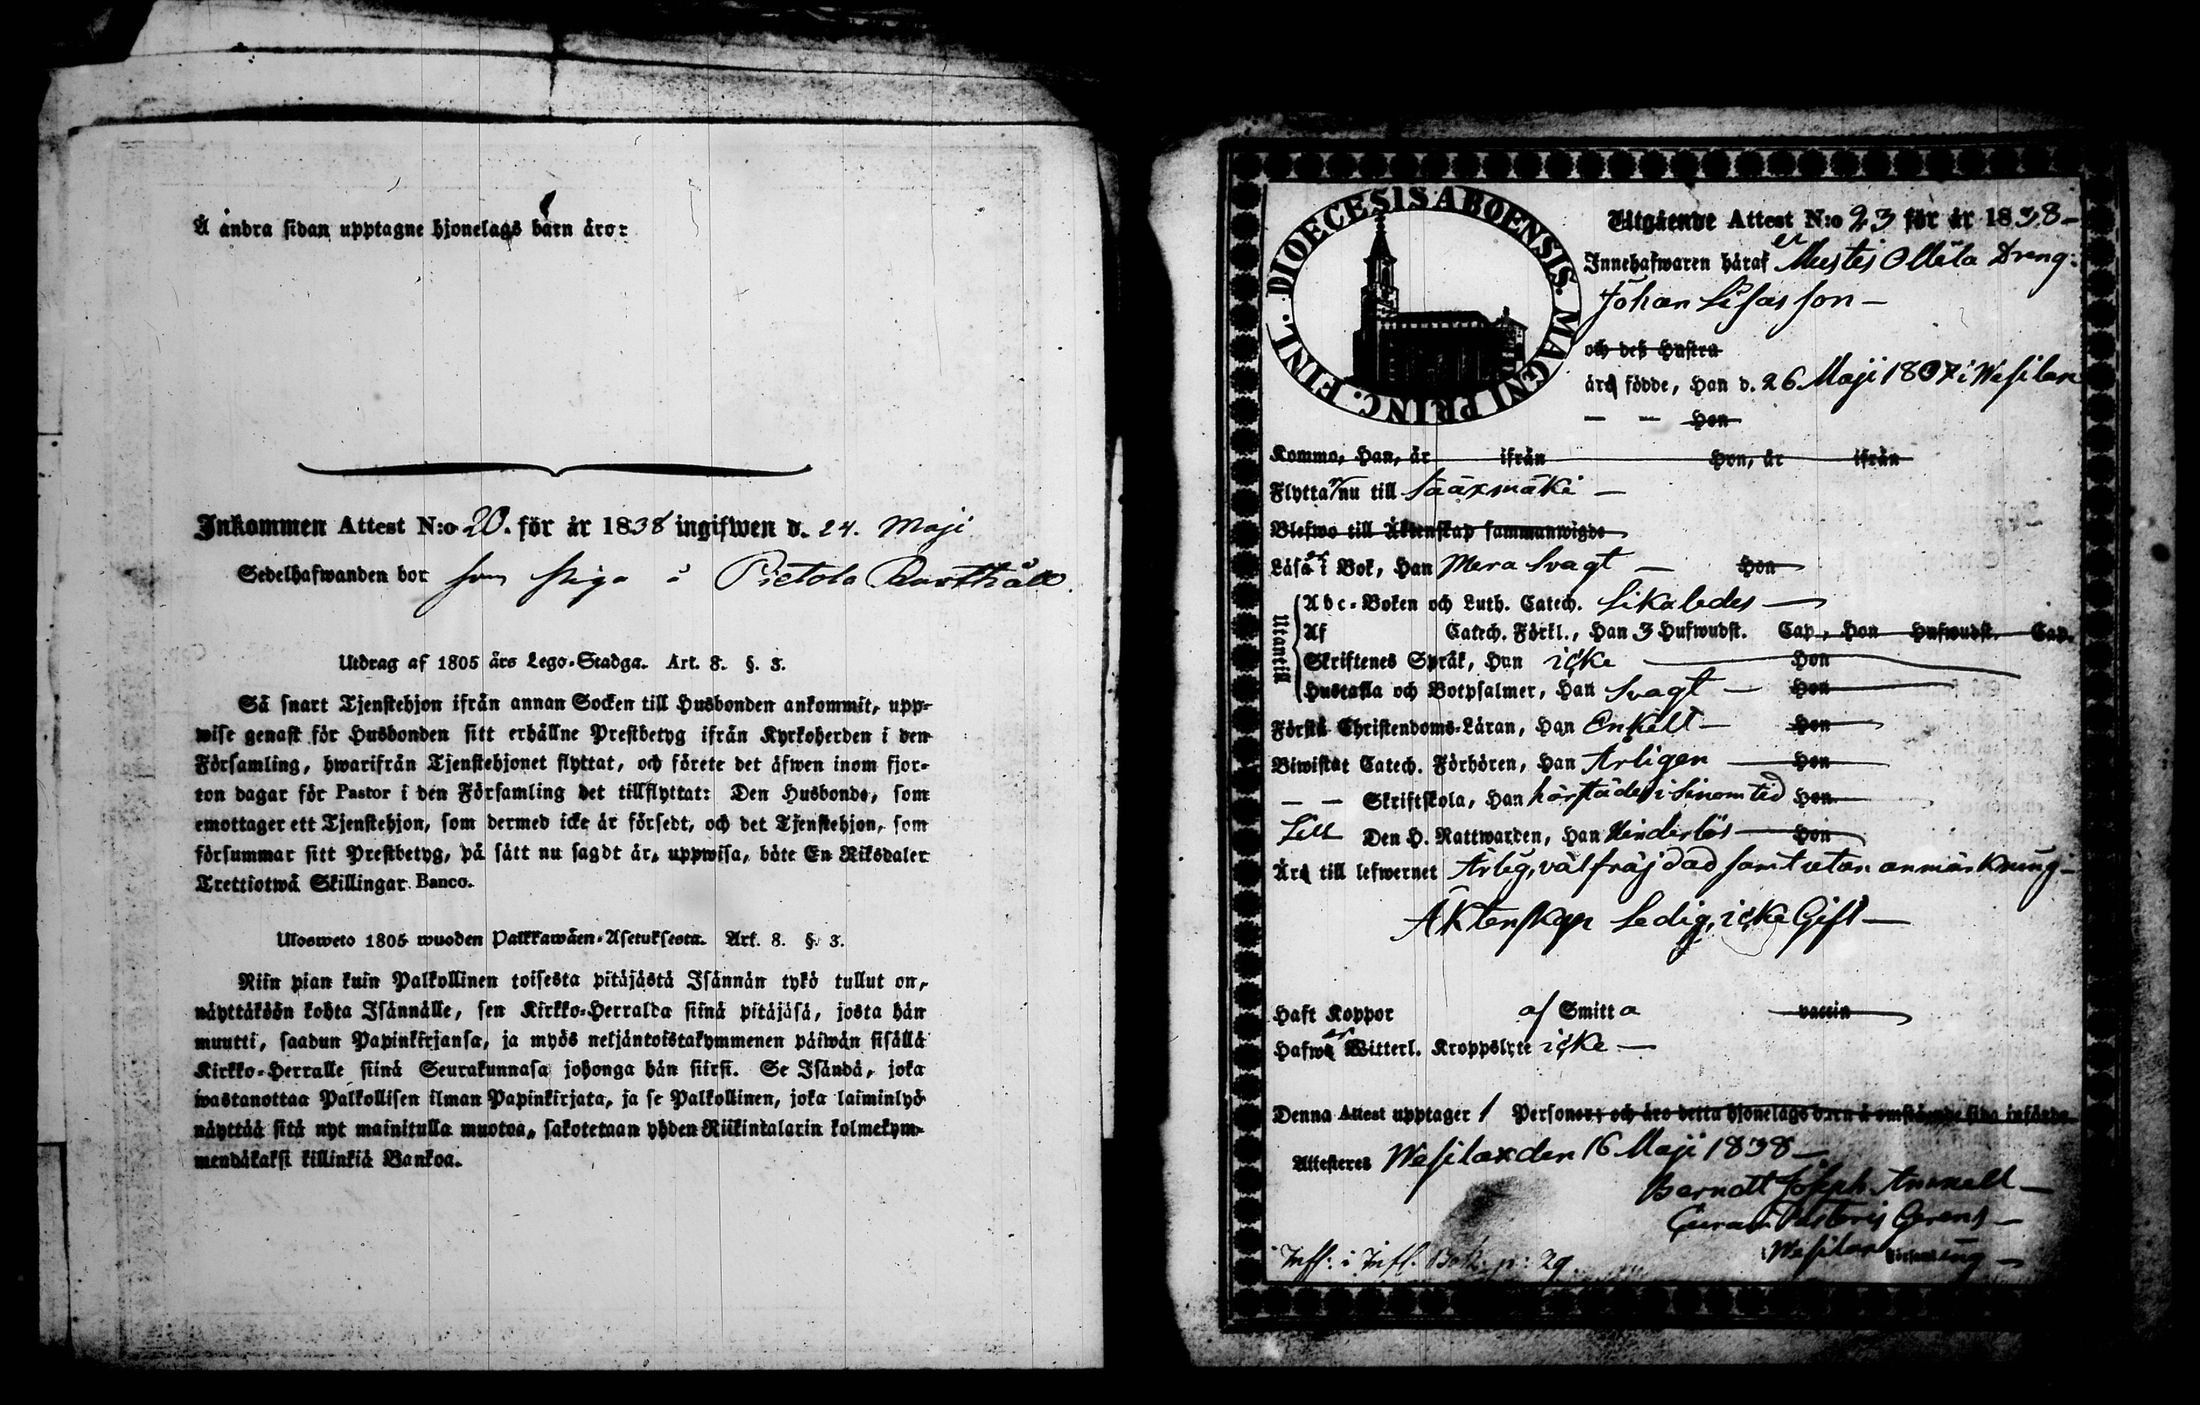 Å andra sidan upptagne hjonelags barn äro:
Inkommen Attest N:o 20. för år 1838 ingifwen d. 24. Maji
Sedelhafwanden bor som piga å Pietola
Utdrag af 1805 års Lego-Stadga. Art. 8. §. 3.
Så snart Tjenstehjon ifrån annan Socken till Husbonden ankommit, upp-
wise genast för Husbonden sitt erhållne Prestbetyg ifrån Kyrkoherden i den
Församling, hwarifrån Tjenstehjonet flyttat, och förete det äfwen inom fjor-
ton dagar för Pastor i den Församling det tillflyttat: Den Husbonde, som
emottager ett Tjenstehjon, som dermed icke är försedt, och det Tjenstehjon, som
försummar sitt Prestbetyg, på sätt nu sagdt är, uppwisa, böte En Riksdaler
Trettiotwå Skillingar Banco.
Ulosweto 1805 wuoden Palkkawäen-Asetuksesta. Art. 8. §. 3.
Niin pian kuin Palkollinen toisesta pitäjästä Isännän tykö tullut on,
näyttäköön kohta Isännälle, sen Kirkko-Herralda siinä pitäjäsä, josta hän
muutti, saadun Papinkirjansa, ja myös neljäntoistakymmenen päiwän sisällä
Kirkko-Herralle siinä Seurakunnasa johonga hän siirsi. Se Isändä, joka
wastanottaa Palkollisen ilman Papinkirjata, ja se Palkollinen, joka laiminlyö
näyttää sitä nyt mainitulla muotoa, sakotetaan yhden Riikintalarin kolmekym-
mendäkaksi killinkiä Bankoa.
DIOECESIS ABOENSIS. MAGNI PRINC. FINL.
Utgående Attest N:o 23 för år 1838
Innehafwaren häraf er Mustis Ollila Dreng:
Johan Esasson
och deß Hustru
äro födde, Han d. 26 Maji 1807 i Wesilax
Hon
Kommo, Han, år ifrån Hon, år ifrån
Flyttar nu till Sääxmäki
Blefwo till Äktenskap sammanwigde
Läsa i Bok, Han Mera Svagt Hon
Utantill
Abc-Boken och Luth. Catech. Likaledes
Af Catech. Förkl., Han 3 Hufwudst. Cap., Hon Hufwudst. Cap.
Skriftenes Språk, Han icke Hon
Hustafla och Botpsalmer, Han Svagt Hon
Förstå Christendoms-Läran, Han Enkelt Hon
Biwistat Catech. Förhören, Han Årligen Hon
Skriftskola, Han härstädes i sinom tid Hon
Till Den H. Nattwarden, Han Hinderlös Hon
Äro till lefwernet Ärlig, välfräjdad samt utan anmärkning
Äktenskap Ledig, icke Gift
Haft Koppor af Smitta vaccin
Hafwa Witterl. Kroppslyte icke
Denna Attest upptager 1 Personer och äro detta hjonelags barn å omstående sida införde
Attesteres Wesilax den 16 Maji 1838
Berndt Joseph
Curam Pastoris Gerens
Wesilax Församling
Infl: i Infl. Bok. p: 29